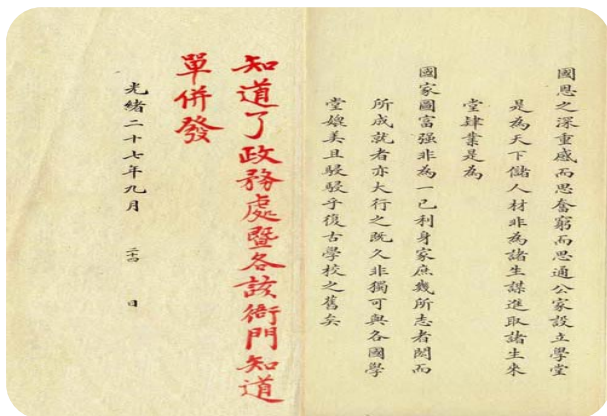 國恩之深重感而思奮窮而思通公家設立學堂
是為天下儲人材非為諸生謀進取諸生來
堂肄業是為
國家圖富强非為一已利身家庶幾所志者閎而
所成就者亦大行之既久非獨可與各國學
堂媲美且駸駸乎復古學校之舊矣
知道了政務處暨各該衙門知道
單併發
光緒二十七年九月 二十四 日